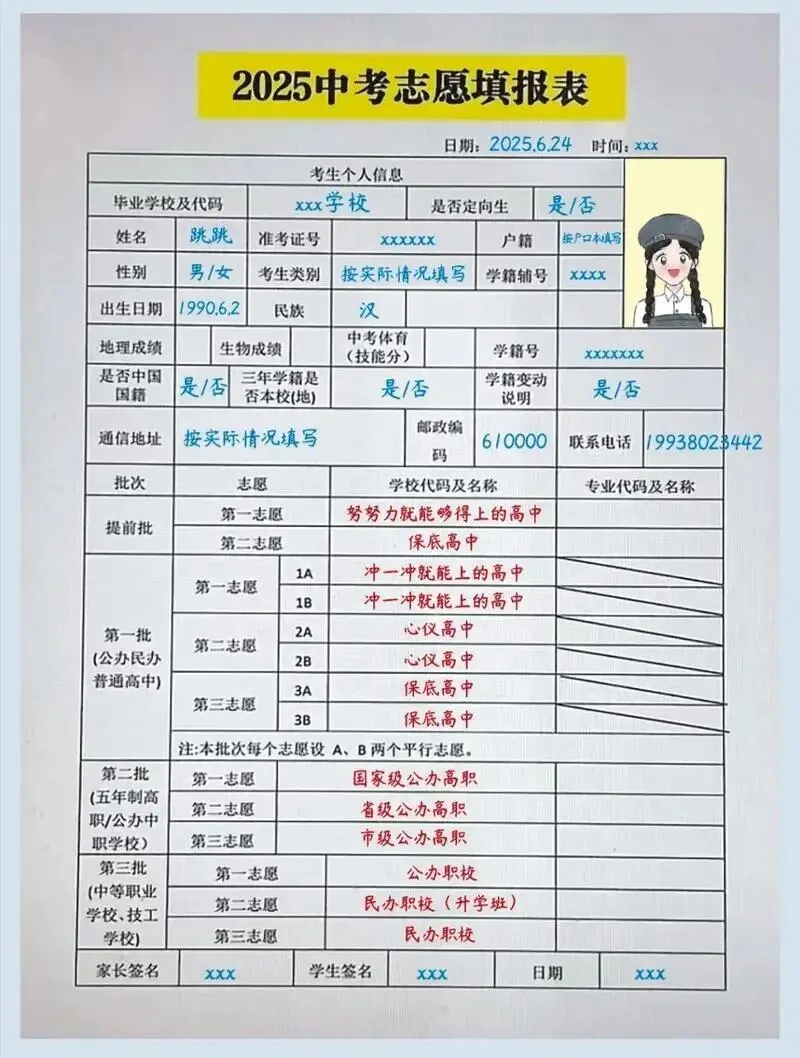 2025中考志愿填报表
日期: 2025.6.24 时间: xxx
考生个人信息
毕业学校及代码 xxx学校 是否定向生 是/否
姓名 跳跳 准考证号 xxxxxx 户籍 按户口本填写
性别 男/女 考生类别 按实际情况填写 学籍辅号 xxxx
出生日期 1990.6.2 民族 汉
地理成绩 生物成绩 中考体育
(技能分) 学籍号 xxxxxxx
是否中国
国籍 是/否 三年学籍是
否本校(地) 是/否 学籍变动
说明 是/否
通信地址 按实际情况填写 邮政编
码 610000 联系电话 19938023442
批次 志愿 学校代码及名称 专业代码及名称
提前批 第一志愿 努努力就能够得上的高中
第二志愿 保底高中
第一批
(公办民办
普通高中)
第一志愿 1A 冲一冲就能上的高中
1B 冲一冲就能上的高中
第二志愿 2A 心仪高中
2B 心仪高中
第三志愿 3A 保底高中
3B 保底高中
注:本批次每个志愿设 A、B 两个平行志愿。
第二批
(五年制高
职/公办中
职学校)
第一志愿 国家级公办高职
第二志愿 省级公办高职
第三志愿 市级公办高职
第三批
(中等职业
学校、技工
学校)
第一志愿 公办职校
第二志愿 民办职校（升学班）
第三志愿 民办职校
家长签名 xxx 学生签名 xxx 日期 xxx